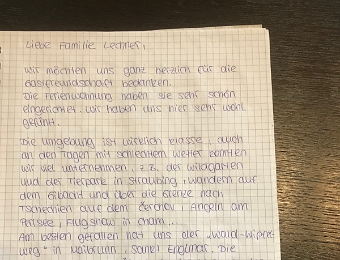 Liebe Familie Lechner,
wir möchten uns ganz herzlich für die
Gastfreundschaft bedanken.
Die Ferienwohnung haben sie sehr schön
eingerichtet. Wir haben uns hier sehr wohl
gefühlt.
Die Umgebung ist wirklich klasse, auch
an den Tagen mit schlechtem Wetter konnten
wir viel unternehmen, z.B. der Wildgarten
und der Tierpark in Straubing, wandern auf
dem Gibacht und über die Grenze nach
Tschechien auf dem Čerchov, Angeln am
Perlsee, Flugshow in Cham...
Am besten gefallen hat uns der "Wald-Wipfel-
weg" in Maibrunn, Sankt Englmar. Die